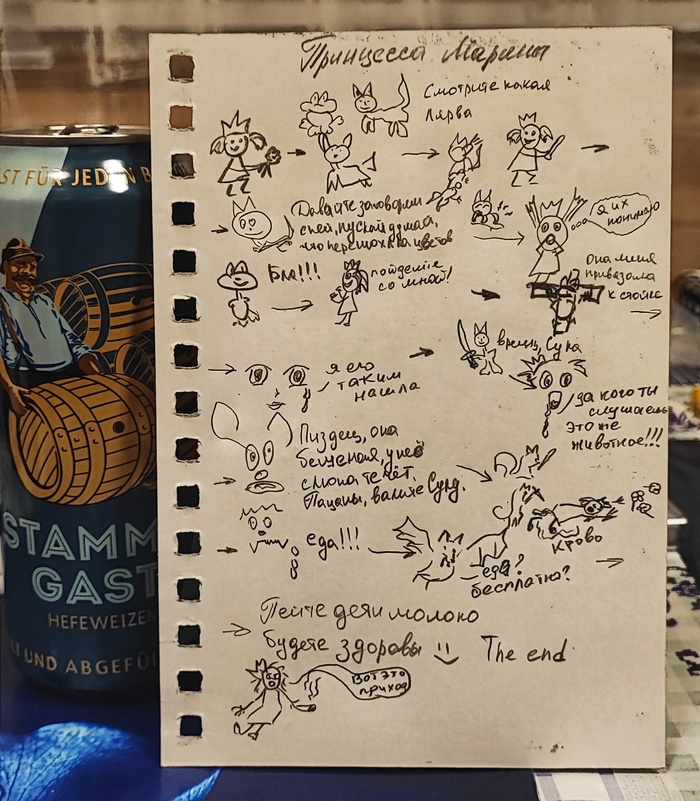 Принцесса Марина
Смотрите какая
Лярва
Давайте заговорим
с ней, пускай думай,
что перенюхала цветов
Я их
понимаю
Бля!!!
пойдемте
со мной!
Она меня
привязала
к стойке
я его
таким
нашла
врёшь, Сука
да кого ты
слушаешь
это же
животное!!!
Пиздец, она
бешеная, у неё
слюна течёт.
Пацаны, валите Суку.
еда!!!
еда?
бесплатно?
Кровь
Пейте дети молоко
Будете здоровы
The end
Вот это
приход
ST FÜR JEDEN B
STAMM
GAST
HEFEWEIZEN
LT UND ABGEFÜ